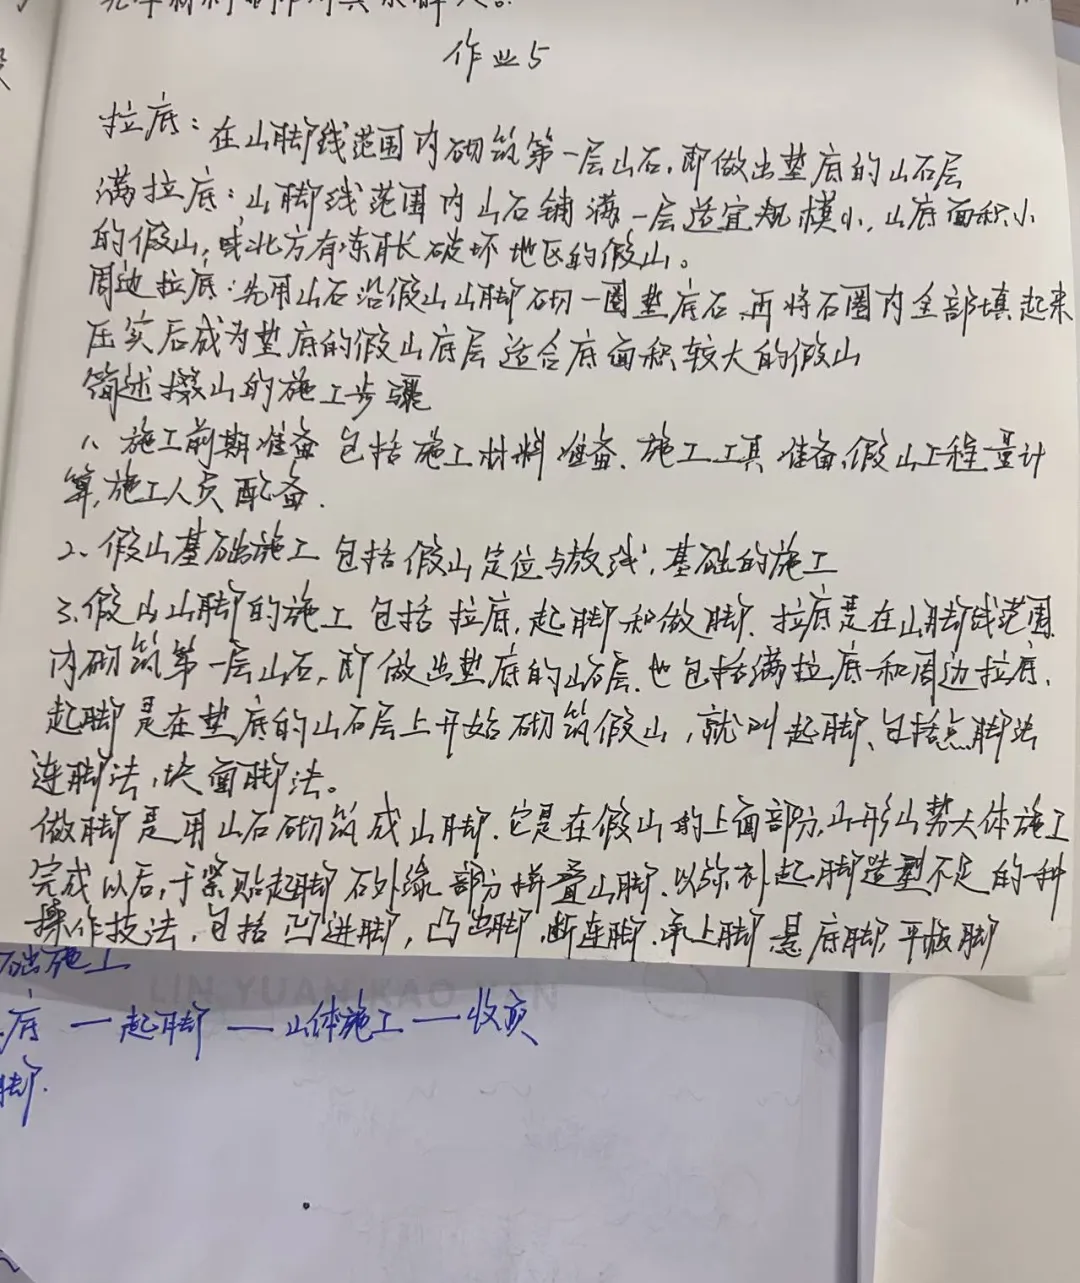 作业5
拉底：在山脚线范围内砌筑第一层山石,即做出垫底的山石层
满拉底：山脚线范围内山石铺满一层适宜规模小,山底面积小
的假山,或北方有冻胀破坏地区的假山。
周边拉底：先用山石沿假山山脚砌一圈垫底石,再将石圈内全部填起来
压实后成为垫底的假山底层 适合底面积较大的假山
简述掇山的施工步骤
1、施工前期准备 包括施工材料准备、施工工具准备,假山工程量计
算,施工人员配备.
2、假山基础施工 包括假山定位与放线,基础的施工
3.假山山脚的施工 包括拉底,起脚和做脚.拉底是在山脚线范围
内砌筑第一层山石,即做出垫底的山石层.也包括满拉底和周边拉底.
起脚是在垫底的山石层上开始砌筑假山,就叫起脚、包括点脚法
连脚法,块面脚法。
做脚是用山石砌筑成山脚.它是在假山的上面部分,山形山势大体施工
完成以后,于紧贴起脚石外缘部分拼叠山脚.以弥补起脚造型不足的一种
操作技法,包括凹进脚,凸出脚,断连脚.承上脚 悬底脚,平板脚
础施工
LIN YUAN KAO
底 — 起脚 — 山体施工 — 收顶
脚.